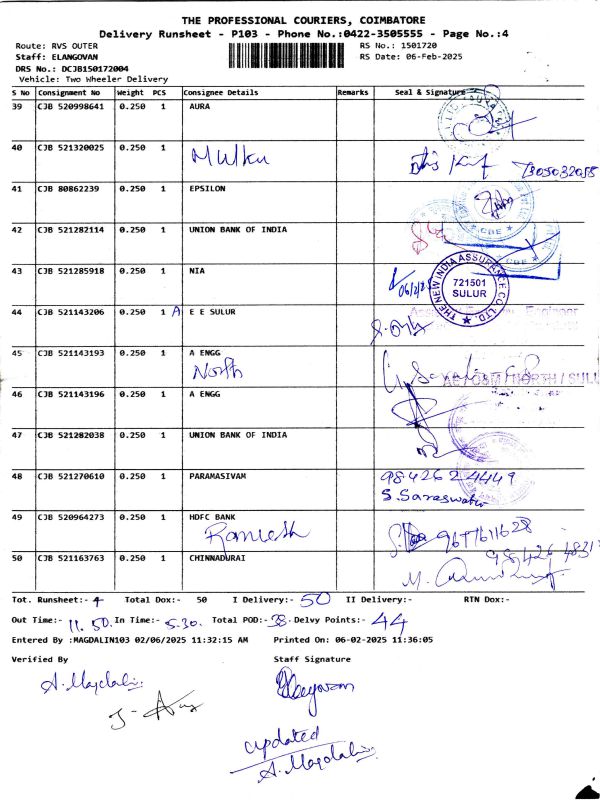 THE PROFESSIONAL COURIERS, COIMBATORE
Delivery Runsheet - P103 - Phone No.:0422-3505555 - Page No.:4
Route: RVS OUTER
RS No.: 1501720
Staff: ELANGOVAN
RS Date: 06-Feb-2025
DRS No.: DCJB150172004
Vehicle: Two Wheeler Delivery
S No Consignment No Weight PCS Consignee Details Remarks Seal & Signature
39 CJB 520998641 0.250 1 AURA
40 CJB 521320025 0.250 1
41 CJB 80862239 0.250 1 EPSILON
CBE
42 CJB 521282114 0.250 1 UNION BANK OF INDIA
CBE
43 CJB 521285918 0.250 1 NIA
THE NEW INDIA ASSURANCE CO. LTD.
721501
SULUR
44 CJB 521143206 0.250 1 A E E SULUR
45 CJB 521143193 0.250 1 A ENGG
North
46 CJB 521143196 0.250 1 A ENGG
47 CJB 521282038 0.250 1 UNION BANK OF INDIA
48 CJB 521270610 0.250 1 PARAMASIVAM
98426 24449
S. Saraswathi
49 CJB 520964273 0.250 1 HDFC BANK
Ramesh
9677611628
50 CJB 521163763 0.250 1 CHINNADURAI
Tot. Runsheet:- 4 Total Dox:- 50 I Delivery:- 50 II Delivery:- RTN Dox:-
Out Time:- 11.50. In Time:- 5.30. Total POD:- 38 Delvy Points:- 44
Entered By :MAGDALIN103 02/06/2025 11:32:15 AM Printed On: 06-02-2025 11:36:05
Verified By Staff Signature
A. Magdalin
updated
A. Magdalin